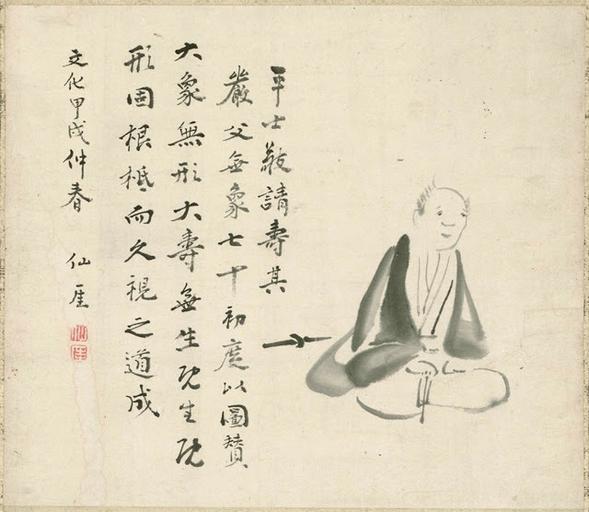 平士敬請壽其
嚴父無象七十初度以圖賛
大象無形大壽無生既生既
形固根柢而久視之道成
文化甲戌仲春 仙厓